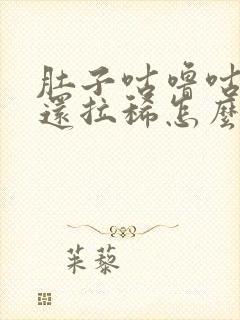 肚子咕嚕咕
還拉稀怎麼
茱藜